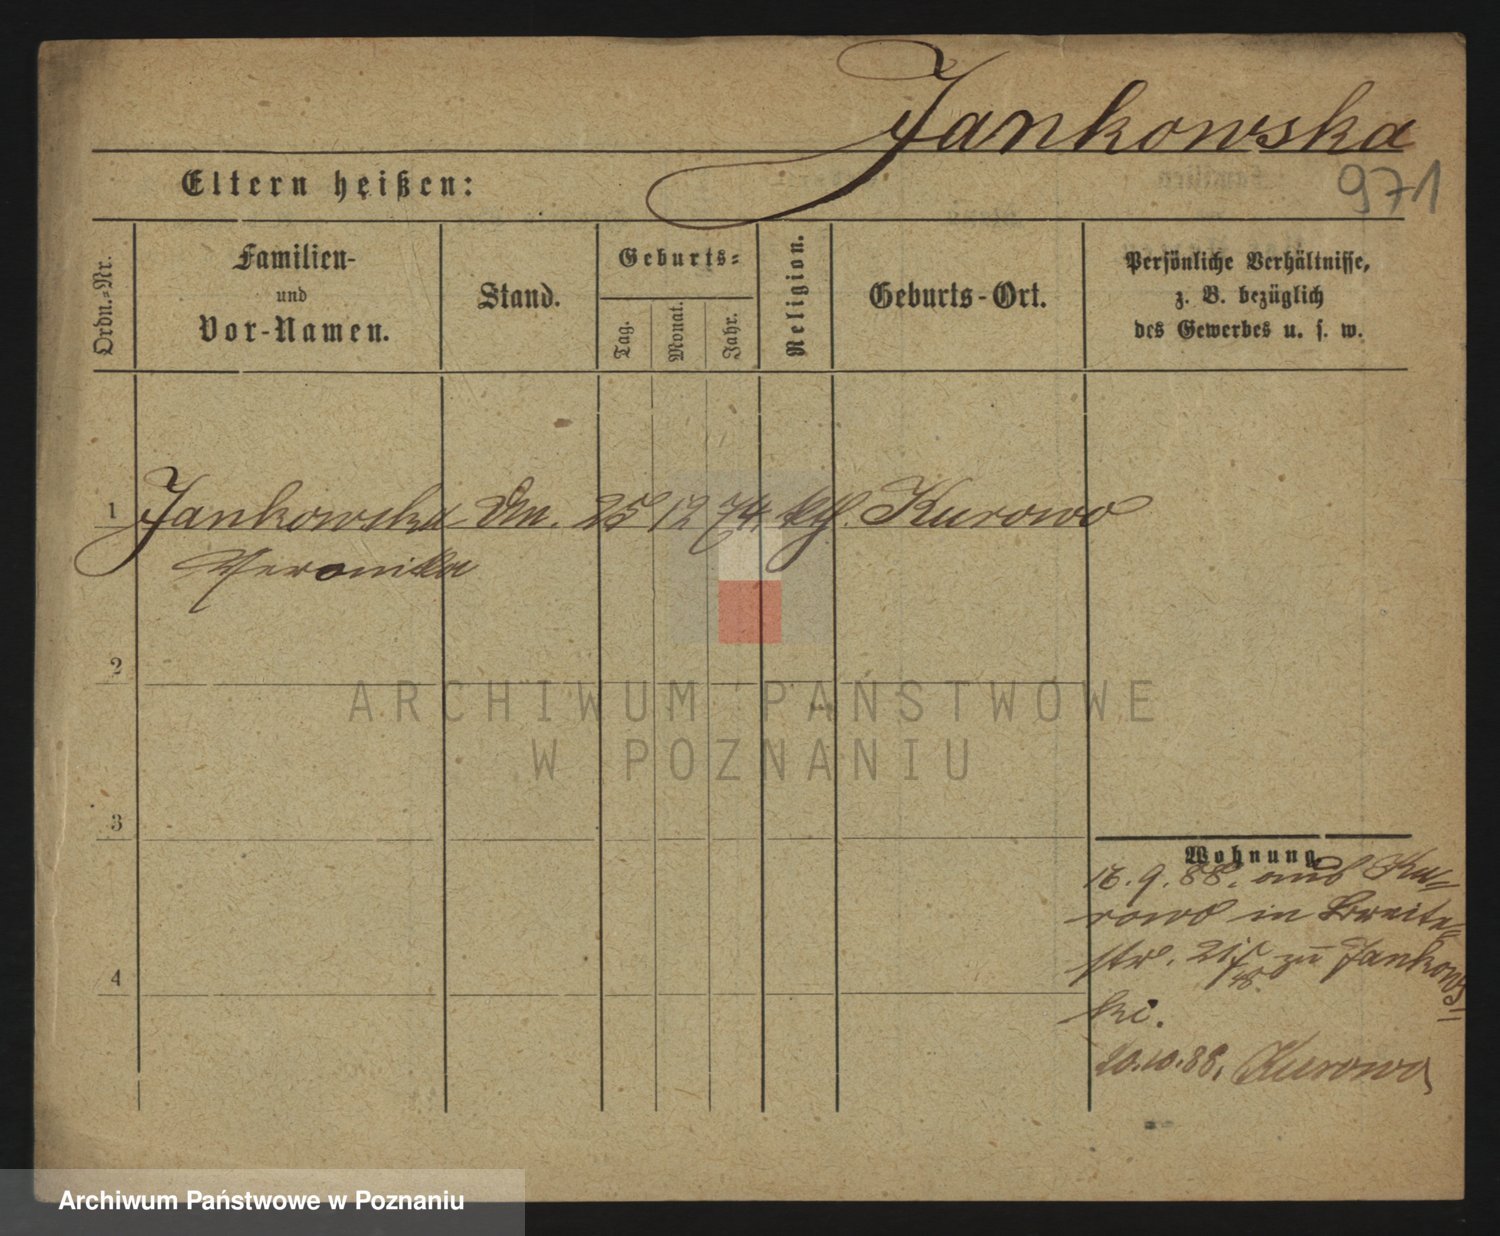 Jankowska
971
Eltern heißen:
Ordn.-Nr.
Familien-
und
Vor-Namen.
Stand.
Geburts-
Tag.
Monat.
Jahr.
Religion.
Geburts-Ort.
Persönliche Verhältnisse,
z. B. bezüglich
des Gewerbes u. s. w.
1 Jankowska 25 12 74 kth. Kurowo
Veronika
2
3
4
ARCHIWUM PAŃSTWOWE
W POZNANIU
Wohnung
16.9.88. aus Ku=
rowo in Breite=
str. 21 zu Jankows=
ki.
20.10.88. Kurowo
Archiwum Państwowe w Poznaniu